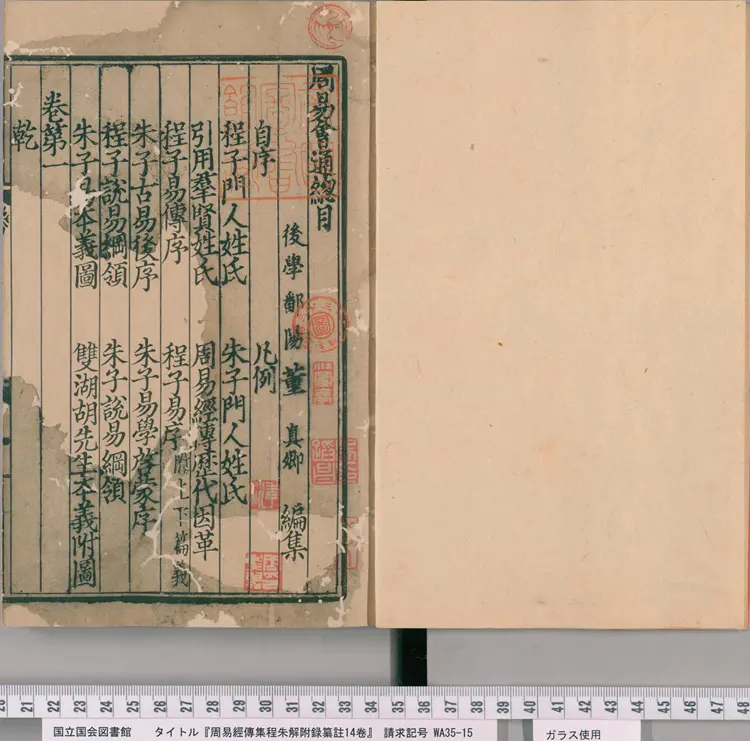 周易會通總目
後學鄱陽董真卿編集
自序 凡例
程子門人姓氏 朱子門人姓氏
引用羣賢姓氏 周易經傳歷代因革
程子易傳序 程子易序附上下篇義
朱子古易後序 朱子易學啓蒙序
程子說易綱領 朱子說易綱領
朱子易本義圖 雙湖胡先生本義附圖
卷第一
乾
20 21 22 23 24 25 26 27 28 29 30 31 32 33 34 35 36 37 38 39 40 41 42 43 44 45 46 47 48
国立国会図書館 タイトル『周易經傳集程朱解附録纂註14巻』 請求記号 WA35-15
ガラス使用